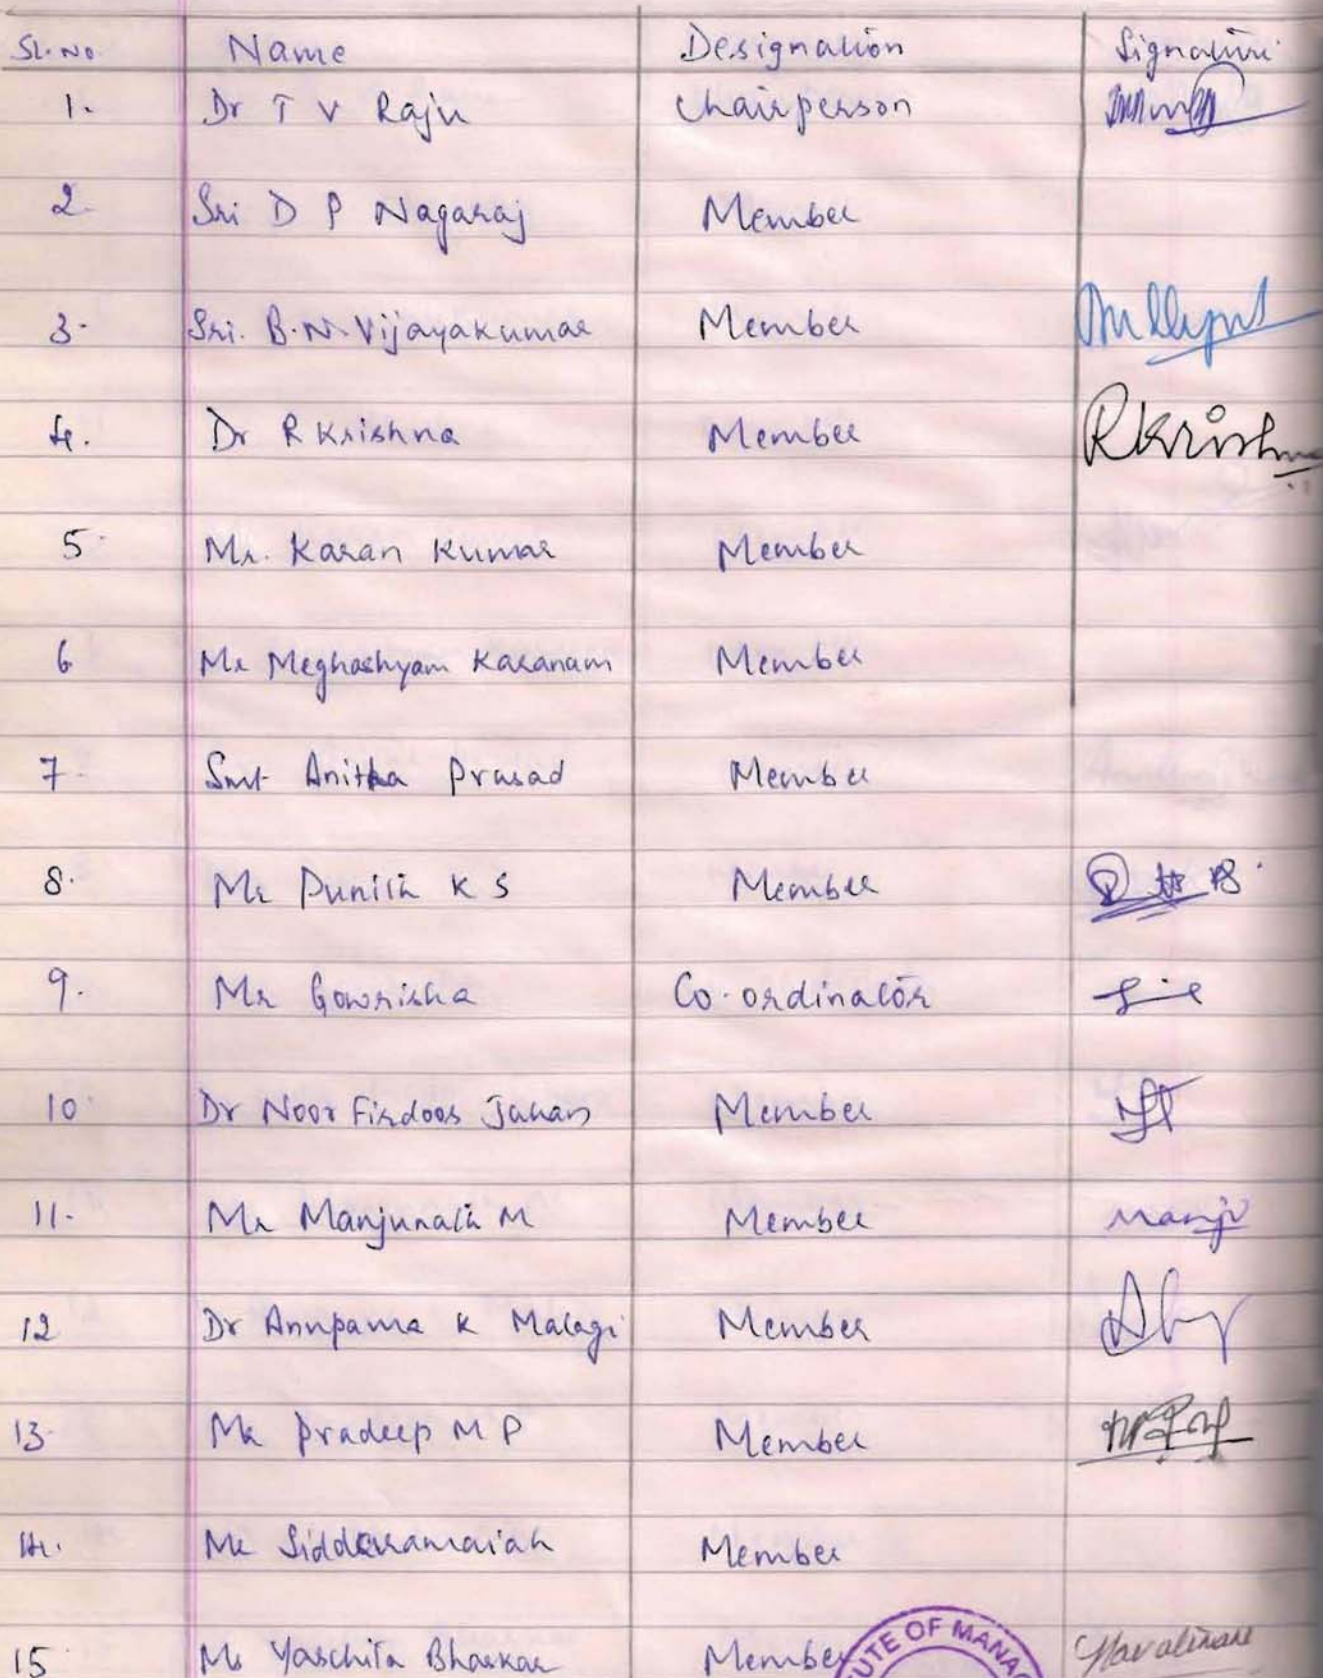 Sl. No. Name Designation Signature
1. Dr T V Raju Chairperson
2. Sri D P Nagaraj Member
3. Sri. B.N. Vijayakumar Member
4. Dr R Krishna Member RKrishna
5. Mr. Karan Kumar Member
6 Mr Meghashyam Karanam Member
7. Smt Anitha Prasad Member
8. Mr Punith K S Member
9. Mr Gowrisha Co-ordinator
10 Dr Noor Firdoos Jahan Member
11. Mr Manjunath M Member Manju
12 Dr Anupama K Malagi Member
13. Mr Pradeep M P Member
14. Mr Siddaramaiah Member
15 Ms Yaschita Bhaskar Member
UTE OF MANAG